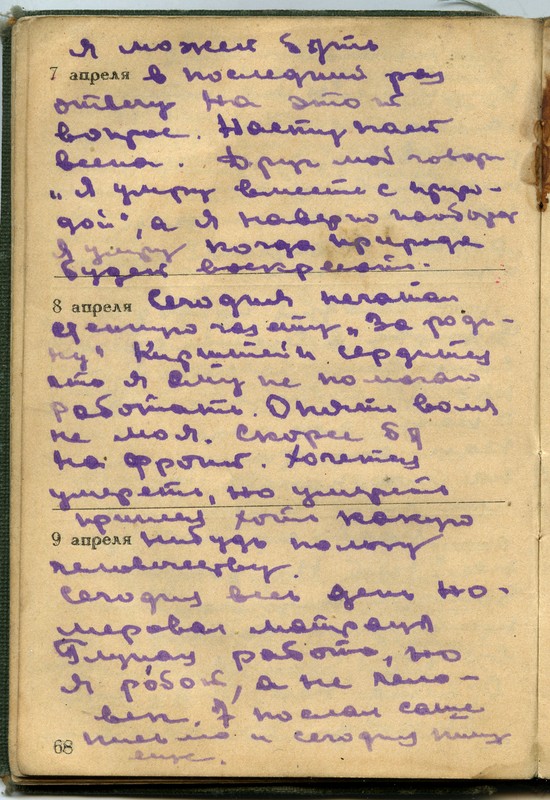 Я может быть
7 апреля в последний раз
отвечу на этот
вопрос. Наступает
весна. Друг мой говори
„Я умру вместе с приро-
дой", а я наверно наоборот
Я умру когда природа
будет воскресать.
8 апреля Сегодня печатал
стенную газету „За роди-
ну" Кирштейн сердится
что я ему не помогаю
работать. Опять воля
не моя. Скорее бы
на фронт. Хочется
умереть, но умереть
принеся хоть какую
9 апреля нибудь пользу
человечеству.
Сегодня весь день но-
меровал матрацы
Глупая работа, но
я робот, а не чело-
век. Я послал Саше
68 письмо и сегодня пишу
еще.